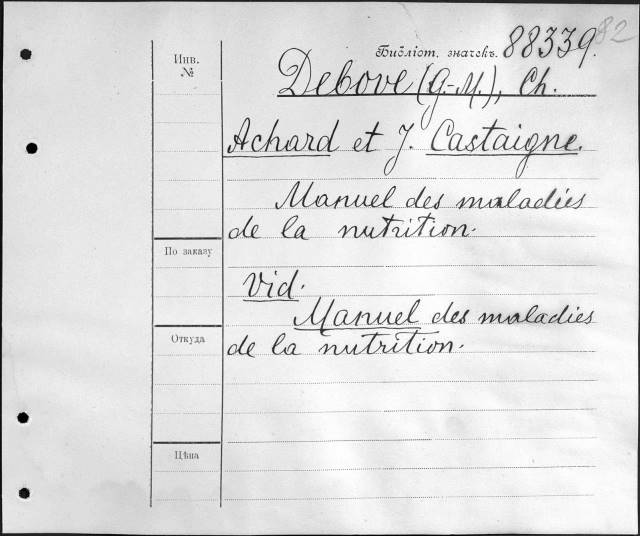 82
Библіот. значекъ. 88339.
Инв.
№
Debove (G.-M.), Ch.
Achard et J. Castaigne.
Manuel des maladies
de la nutrition.
По заказу
Vid.
Manuel des maladies
Откуда
de la nutrition.
Цѣна